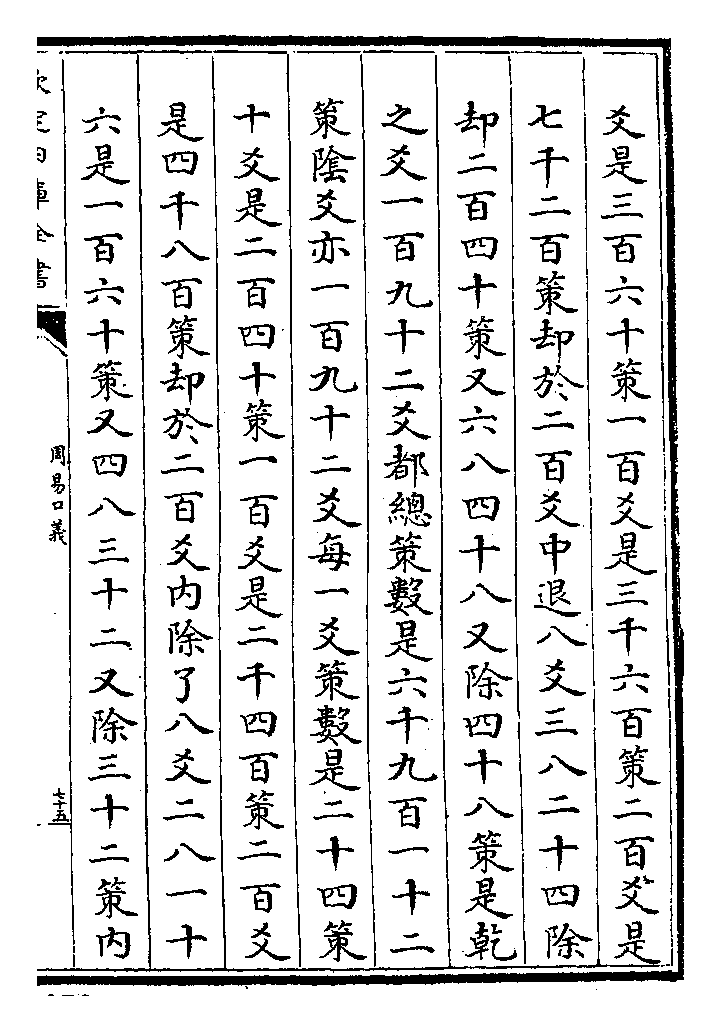 爻是三百六十策一百爻是三千六百策二百爻是
七千二百策却於二百爻中退八爻三八二十四除
却二百四十策又六八四十八又除四十八策是乾
之爻一百九十二爻都總策數是六千九百一十二
策隂爻亦一百九十二爻每一爻策數是二十四策
十爻是二百四十策一百爻是二千四百策二百爻
是四千八百策却於二百爻内除了八爻二八一十
六是一百六十策又四八三十二又除三十二策内
欽定四庫全書
周易口義
七十五